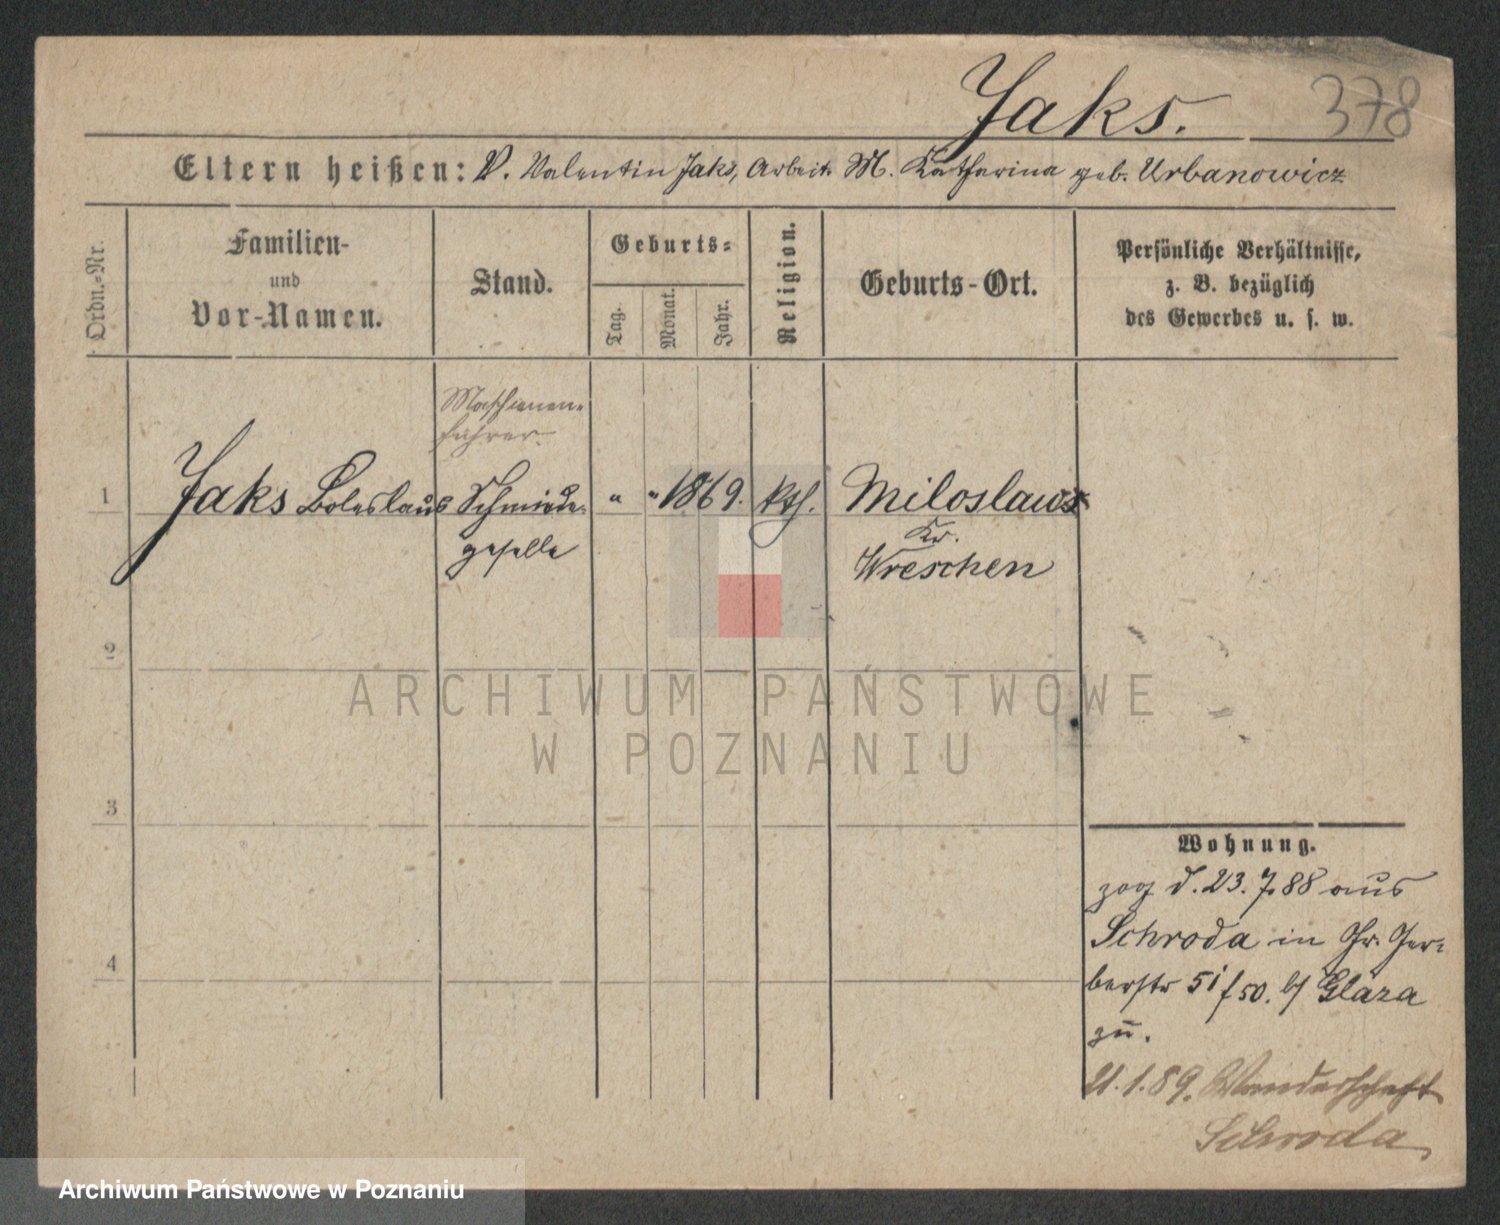 Jaks. 378
Eltern heißen: V. Valentin Jaks, Arbeit. M. Katharina geb. Urbanowicz
Ordn.-Nr.
Familien-
und
Vor-Namen.
Stand.
Geburts-
Tag.
Monat.
Jahr.
Religion.
Geburts-Ort.
Persönliche Verhältnisse,
z. B. bezüglich
des Gewerbes u. s. w.
Maschienen-
führer
1 Jaks Boleslaus Schmiede- " " 1869. kth. Miloslaw
geselle
Kr.
Wreschen
2
3
4
Wohnung.
zog d. 23.7.88 aus
Schroda in Gr. Ger-
berstr 51 / 50. b/ Glaza
zu.
21.1.89. Wanderschaft
Schroda
ARCHIWUM PAŃSTWOWE
W POZNANIU
Archiwum Państwowe w Poznaniu